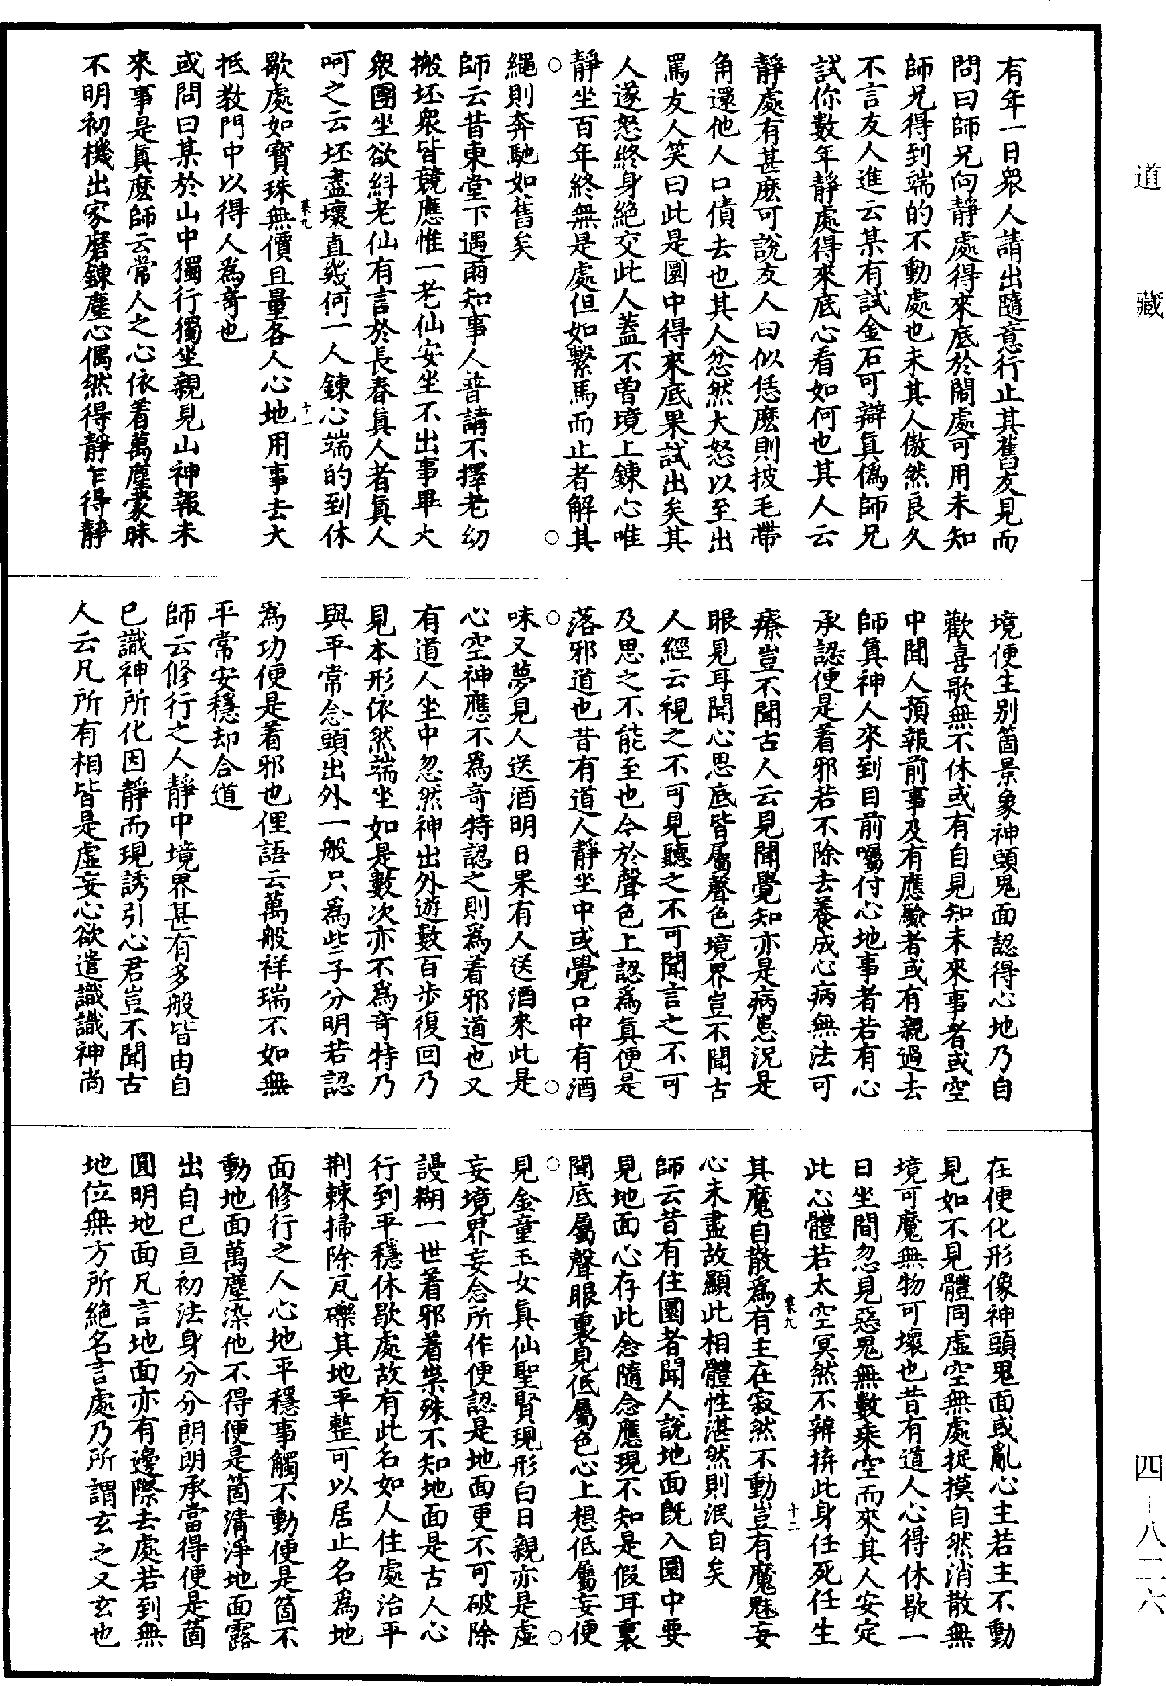 道藏
四—八二六
有年一日衆人請出隨意行止其舊友見而
問曰師兄向靜處得來底於鬧處可用未知
師兄得到端的不動處也未其人傲然良久
不言友人進云某有試金石可辯真僞師兄
試你數年靜處得來底心看如何也其人云
靜處有甚麽可說友人曰似恁麽則披毛帶
角還他人口債去也其人忿然大怒以至出
罵友人笑曰此是圜中得來底果試出矣其
人遂怒終身絶交此人蓋不曾境上鍊心唯
靜坐百年終無是處但如繫馬而止者解其
繩則奔馳如舊矣
師云昔東堂下遇雨知事人普請不擇老幼
搬坯衆皆競應惟一老仙安坐不出事畢大
衆團坐欲糾老仙有言於長春真人者真人
呵之云坯盡壞直幾何一人鍊心端的到休
歇處如寶珠無價且量各人心地用事去大
抵教門中以得人爲奇也
或問曰某於山中獨行獨坐親見山神報未
來事是真麽師云常人之心依着萬塵蒙昧
不明初機出家磨鍊塵心偶然得靜乍得靜
境便生别箇景象神頭鬼面認得心地乃自
歡喜歌無不休或有自見知未來事者或空
中聞人預報前事及有應驗者或有親過去
師真神人來到目前囑付心地事者若有心
承認便是着邪若不除去養成心病無法可
療豈不聞古人云見聞覺知亦是病崽況是
眼見耳聞心思底皆屬聲色境界豈不聞古
人經云視之不可見聽之不可聞言之不可
及思之不能至也今於聲色上認爲真便是
落邪道也昔有道人靜坐中或覺口中有酒
味又夢見人送酒明日果有人送酒來此是
心空神應不爲奇特認之則爲着邪道也又
有道人坐中忽然神出外遊數百步復回乃
見本形依然端坐如是數次亦不爲奇特乃
與平常念頭出外一般只爲些子分明若認
爲功便是着邪也俚語云萬般祥瑞不如無
平常安穩却合道
師云修行之人靜中境界甚有多般皆由自
已識神所化因靜而現誘引心君豈不聞古
人云凡所有相皆是虛妄心欲遣識識神尚
在便化形像神頭鬼面或亂心主若主不動
見如不見體同虛空無處捉摸自然消散無
境可魔無物可壞也昔有道人心得休歇一
日坐間忽見惡鬼無數乘空而來其人安定
此心體若太空冥然不辨拚此身任死任生
其魔自散爲有主在寂然不動豈有魔魅妄
心未盡故顯此相體性湛然則泯自矣
師云昔有住圜者聞人說地面旣入圜中要
見地面心存此念隨念應現不知是假耳裏
聞底屬聲眼裏見底屬色心上想低屬妄便
見金童玉女真仙聖賢現形白日親亦是虛
妄境界妄念所作便認是地面更不可破除
謾糊一世着邪着祟殊不知地面是古人心
行到平穩休歇處故有此名如人住處治平
荆棘掃除瓦礫其地平整可以居止名爲地
面修行之人心地平穩事觸不動便是箇不
動地面萬塵染他不得便是箇清淨地面露
出自己亘初法身分分朗朗承當得便是箇
圓明地面凡言地面亦有邊際去處若到無
地位無方所絶名言處乃所謂玄之又玄也